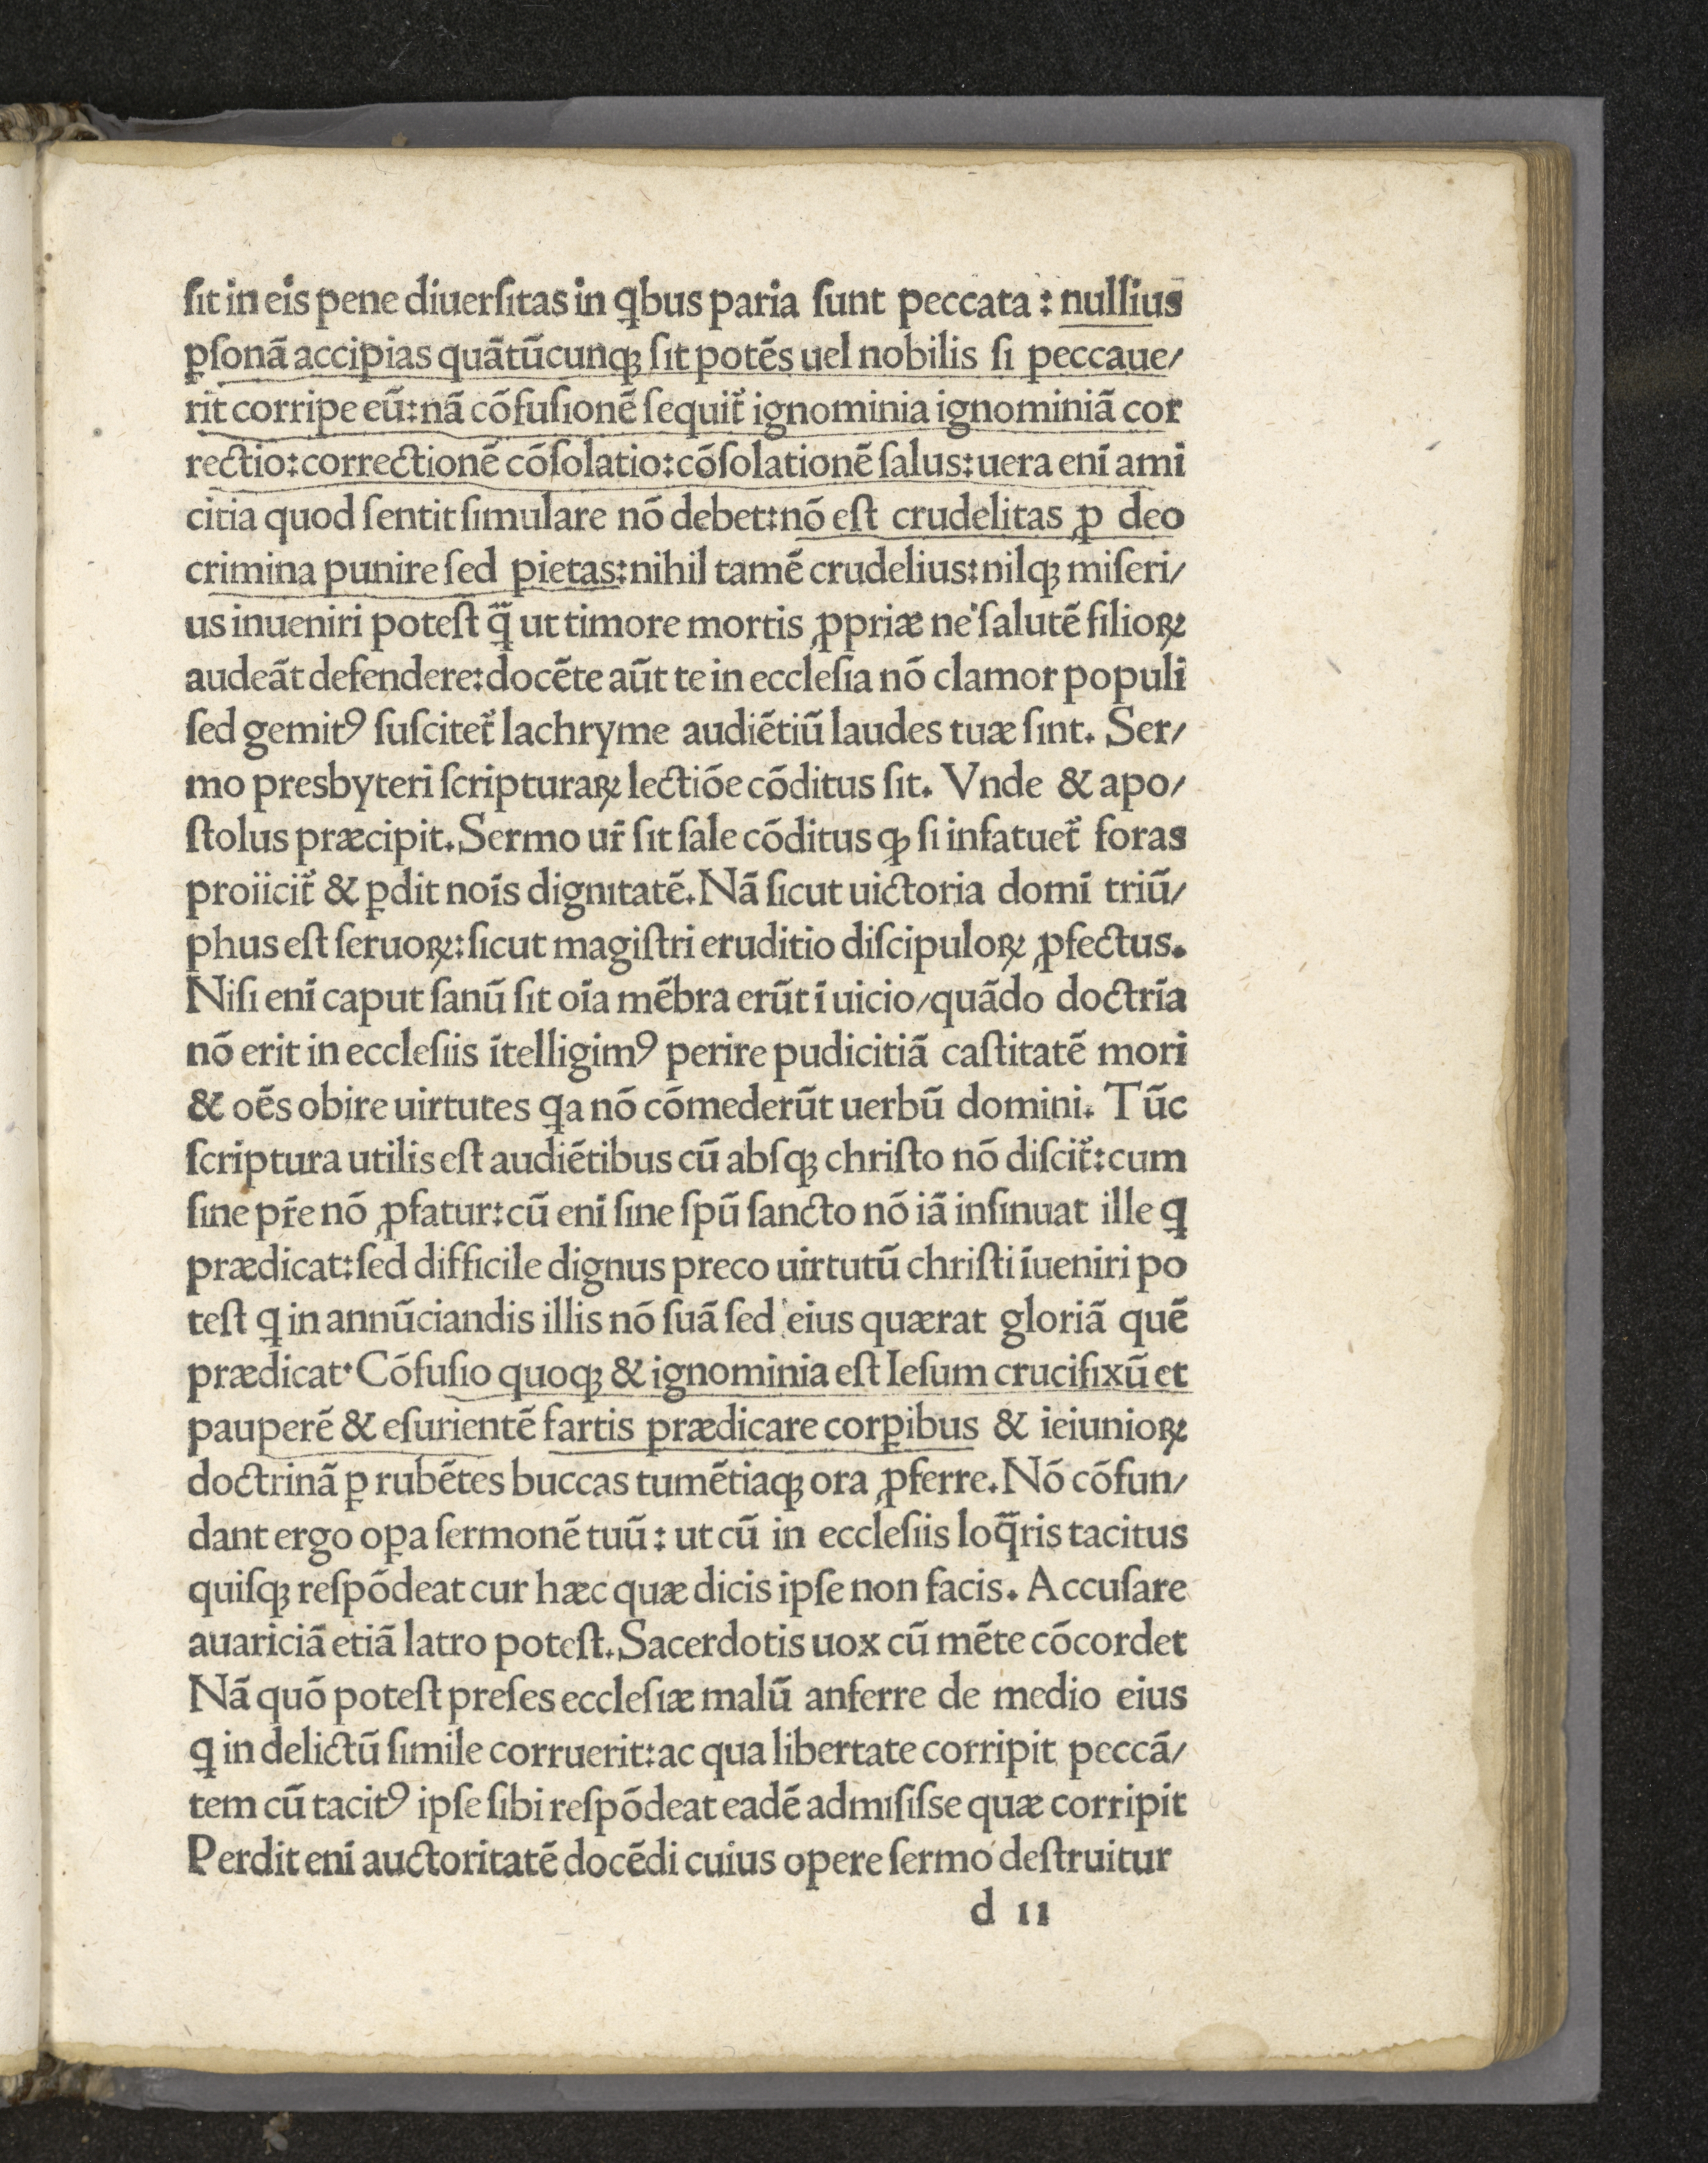 ſit in eis pene diuerſitas in ꝗbus paria ſunt peccata : nulſius
ꝑſonā accipias quātūcunqꝫ ſit potēs uel nobilis ſi peccaue/
rit corripe eū:nā cōfuſionē ſequit᷑ ignominia ignominiā cor
rectio:correctionē cōſolatio:cōſolationē ſalus:uera enī ami
citia quod ſentit ſimulare nō debet:nō eſt crudelitas ꝓ deo
crimina punire ſed pietas:nihil tamē crudelius:nilqꝫ miſeri/
us inueniri poteſt q̄̃ ut timore mortis ꝓpriæ ne ſalutē filioꝝ
audeāt defendere:docēte aūt te in eccleſia nō clamor populi
ſed gemitꝰ ſuſcitet᷑ lachryme audiētiū laudes tuæ ſint. Ser/
mo presbyteri ſcripturaꝝ lectiōe cōditus ſit. Vnde & apo/
ſtolus præcipit.Sermo ur̄ ſit ſale cōditus ꝙ ſi infatuet᷑ foras
proiicit᷑ & ꝑdit noīs dignitatē.Nā ſicut uictoria domī triū/
phus eſt ſeruoꝝ:ſicut magiſtri eruditio diſcipuloꝝ ꝓfectus.
Niſi enī caput ſanū ſit oīa mēbra erūt ī uicio/quādo doctrīa
nō erit in eccleſiis ītelligimꝰ perire pudicitiā caſtitatē mori
& oēs obire uirtutes ꝗa nō cōmederūt uerbū domini. Tūc
ſcriptura utilis eſt audiētibus cū abſqꝫ chriſto nō diſcit᷑:cum
ſine pr̄e nō ꝓfatur:cū enī ſine ſpū ſancto nō iā inſinuat ille ꝗ
prædicat:ſed difficile dignus preco uirtutū chriſti īueniri po
teſt ꝗ in annūciandis illis nō ſuā ſed eius quærat gloriā quē
prædicat·Cōfuſio quoqꝫ & ignominia eſt Ieſum crucifixū et
pauperē & eſurientē fartis prædicare corꝑibus & ieiunioꝝ
doctrinā ꝑ rubētes buccas tumētiaqꝫ ora ꝓferre.Nō cōfun/
dant ergo oꝑa ſermonē tuū : ut cū in eccleſiis loq̄ris tacitus
quiſqꝫ reſpōdeat cur hæc quæ dicis ipſe non facis. Accuſare
auariciā etiā latro poteſt.Sacerdotis uox cū mēte cōcordet
Nā quō poteſt preſes eccleſiæ malū anferre de medio eius
ꝗ in delictū ſimile corruerit:ac qua libertate corripit peccā/
tem cū tacitꝰ ipſe ſibi reſpōdeat eadē admiſiſse quæ corripit
Perdit enī auctoritatē docēdi cuius opere ſermo deſtruitur
d ıı